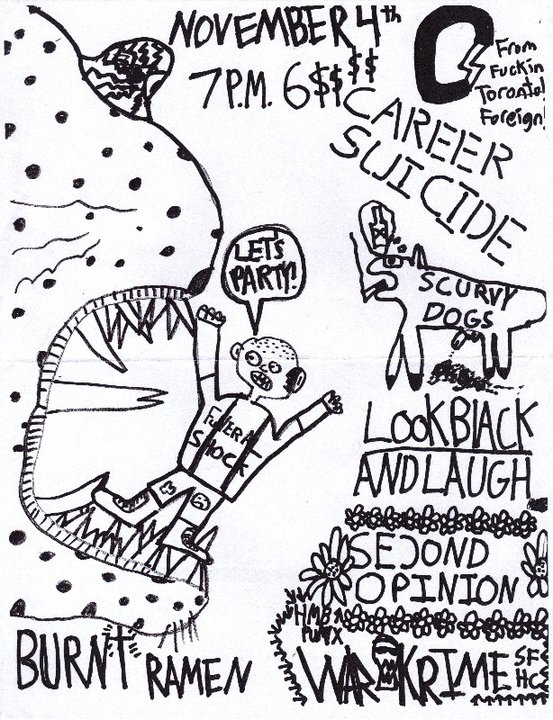 NOVEMBER 4th
7 P.M. 6$$$$
From
Fuckin
Toronto!
Foreign!
CAREER
SUICIDE
LET'S
PARTY!
SCURVY
DOGS
FUNERAL
SHOCK
LOOK BLACK
AND LAUGH
SECOND
OPINION
HMB
PUNX
WAR KRIME
SF
HC
BURNT RAMEN